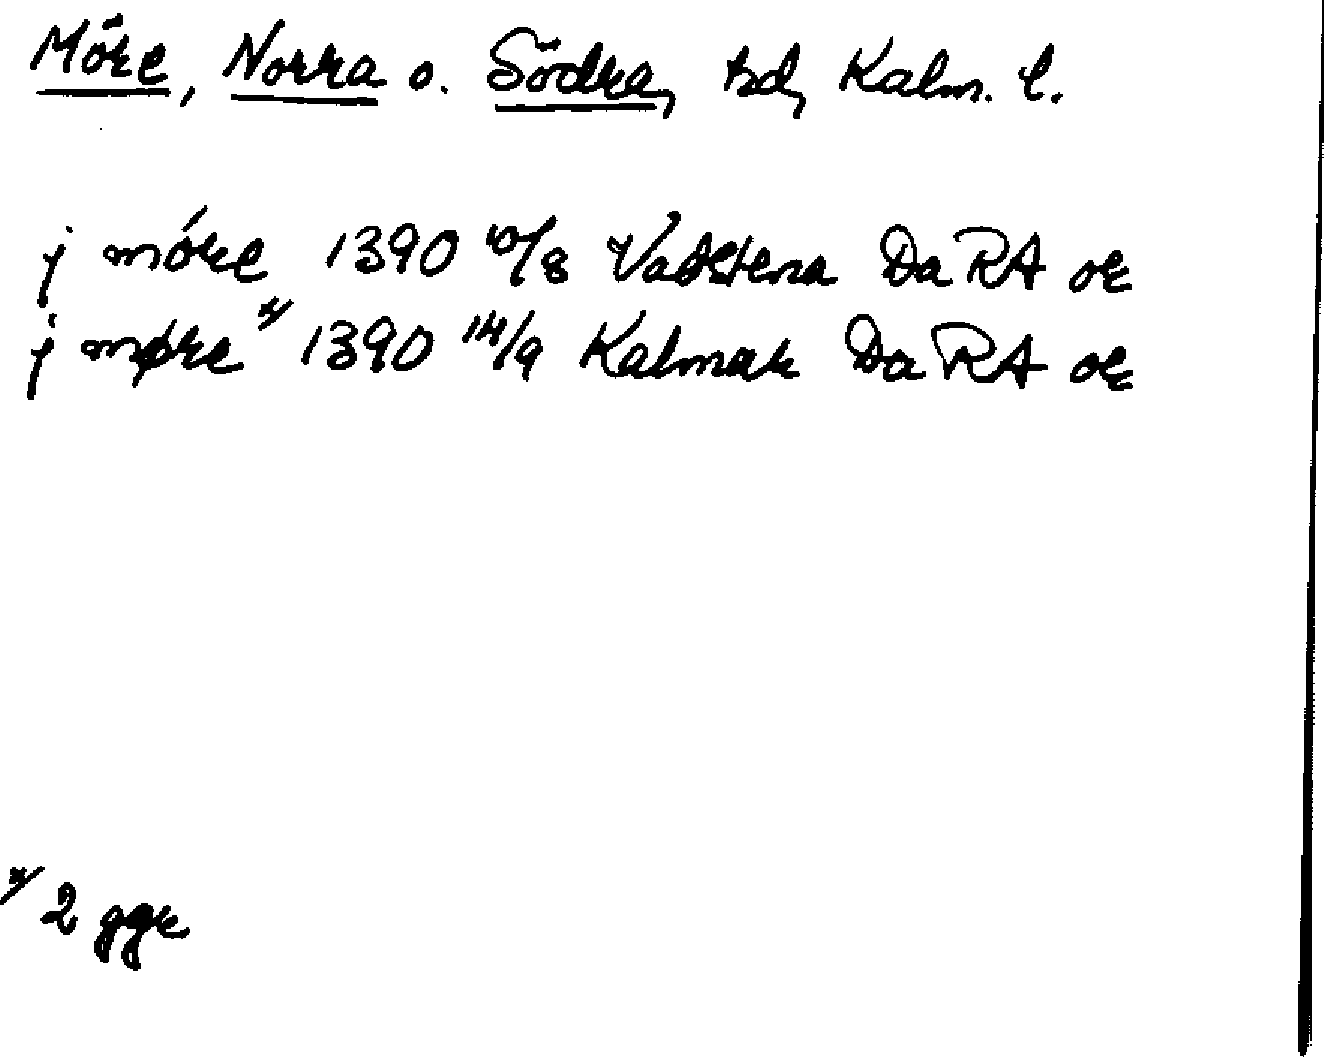 Möre, Norra o. Södra, hd, Kalm. l.
j móre 1390 10/8 Vadstena Da RA or
j møre x/ 1390 14/9 Kalmar Da RA or
x/ 2 ggr